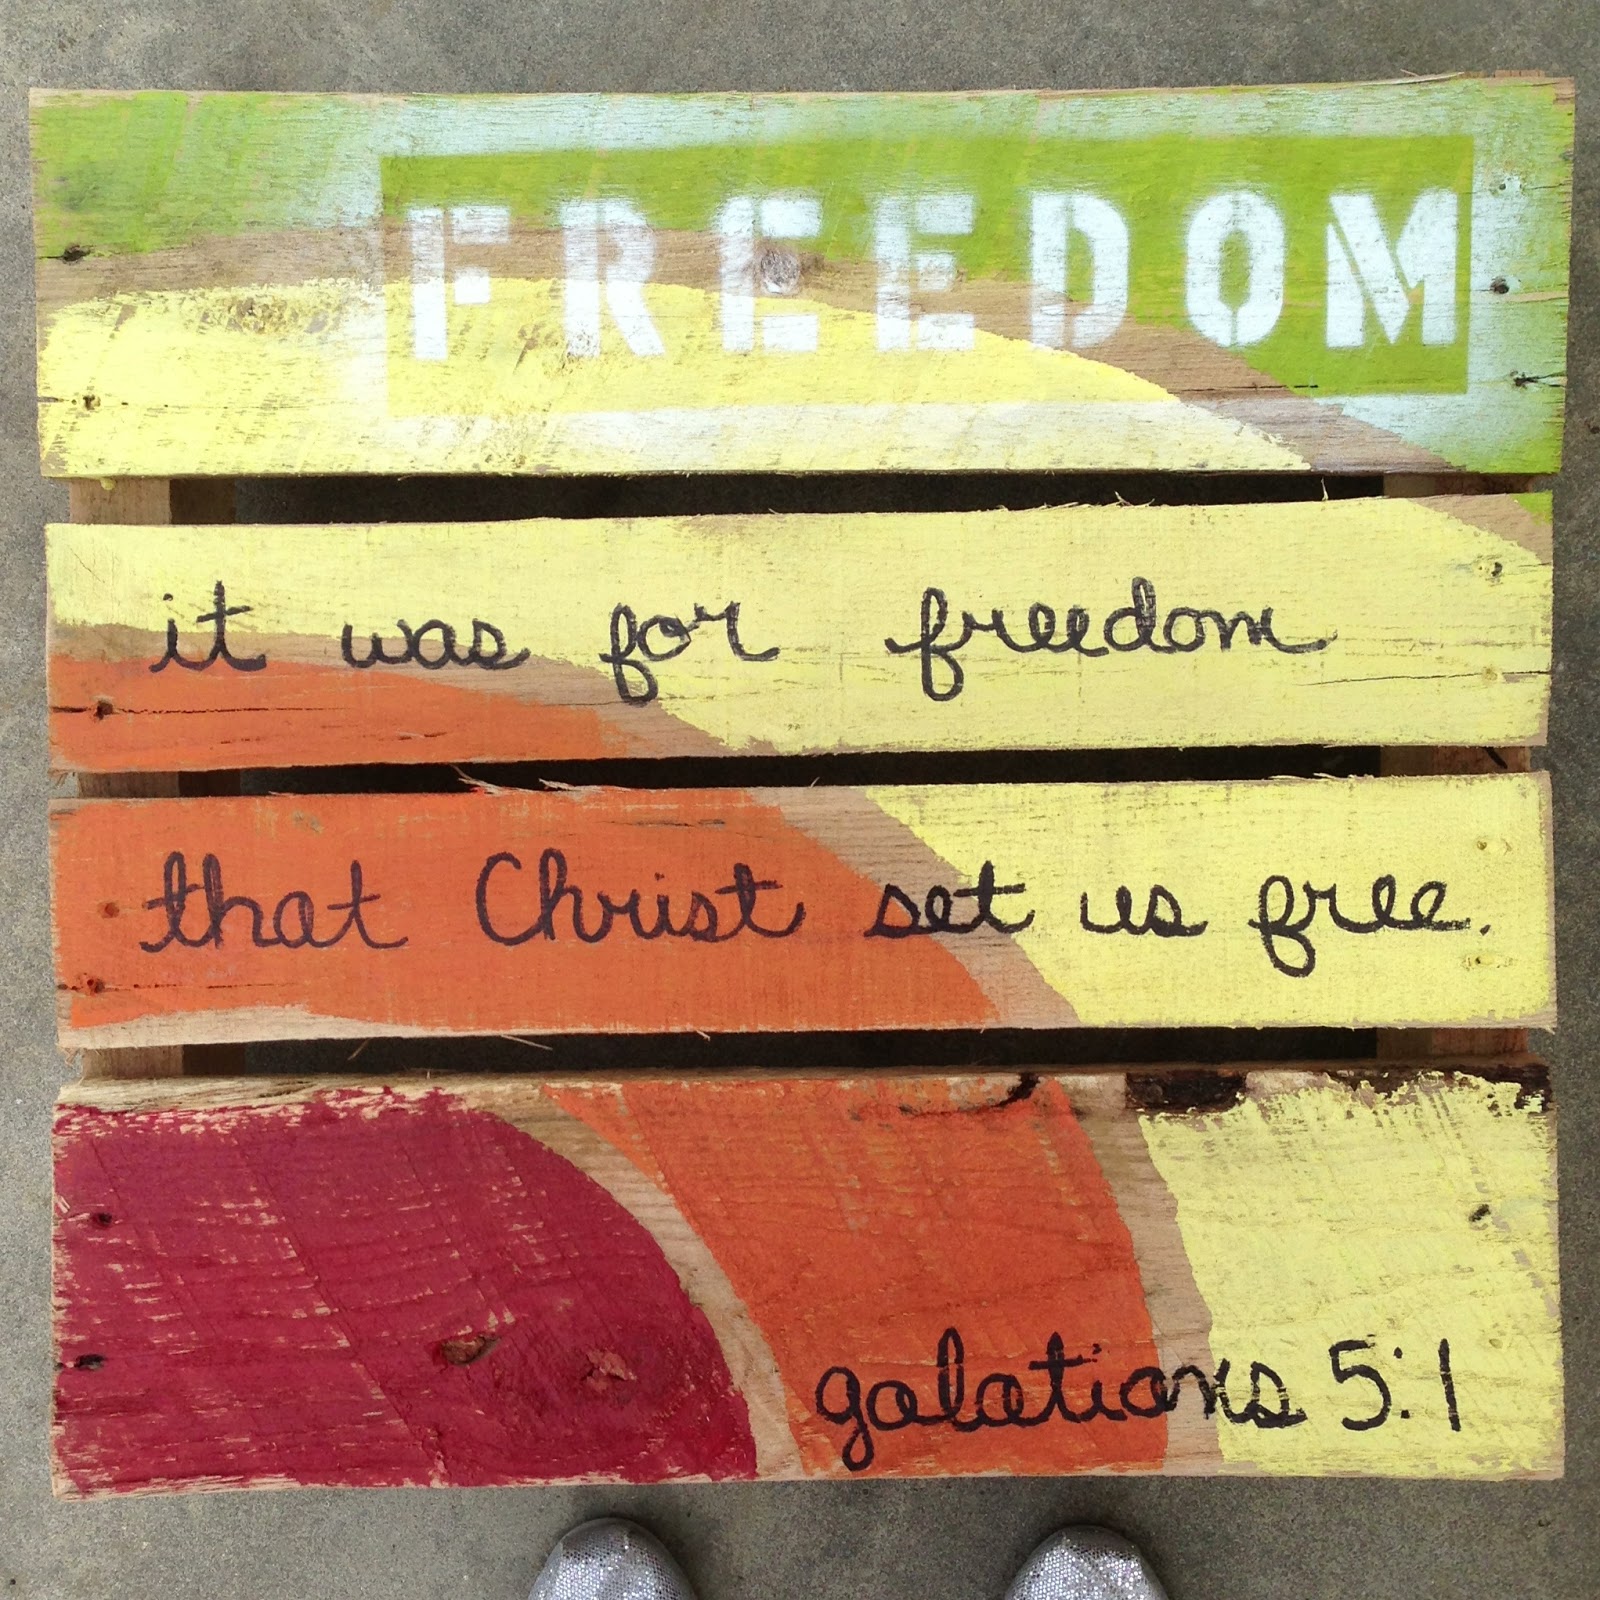 FREEDOM
it was for freedom
that Christ set us free.
galatians 5:1